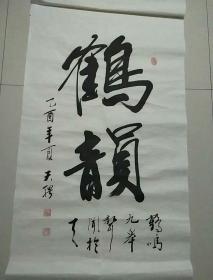 鶴韻
鶴鳴
九皋
聲
聞於
天
乙酉年夏天